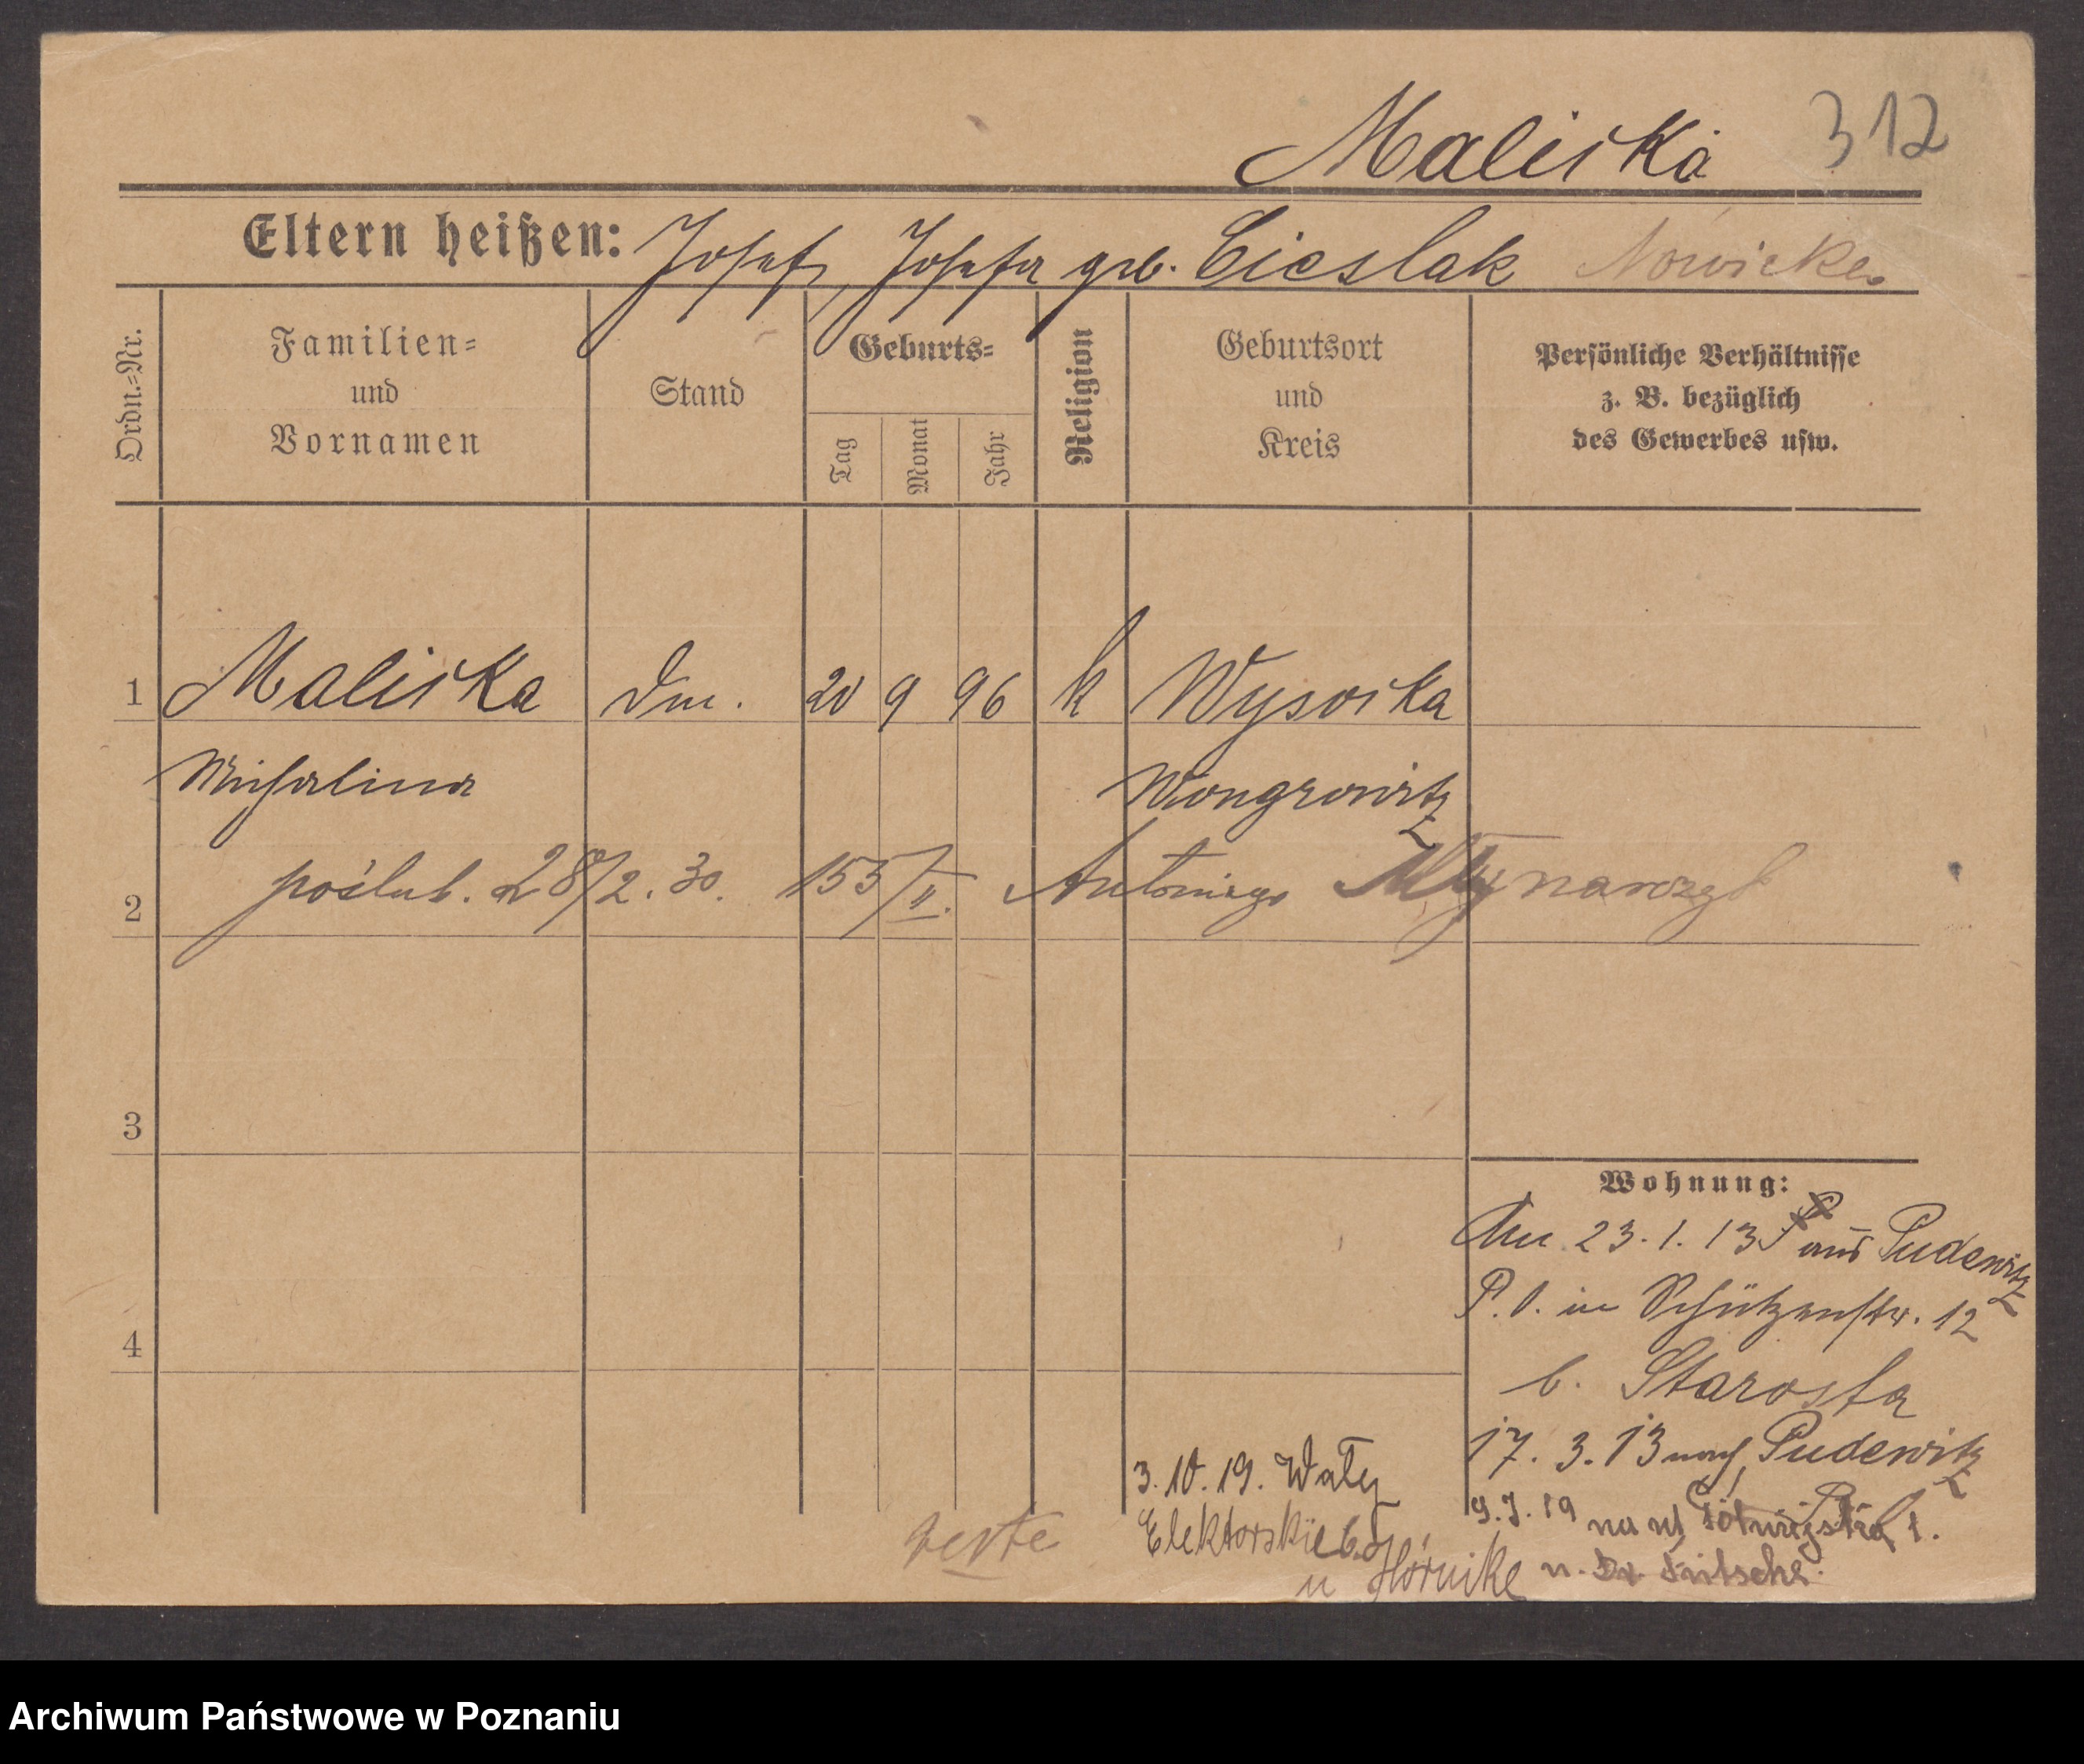 Maliska 312
Eltern heißen: Josef, Josefa geb. Cieslak Nowicka
Ordn.-Nr.
Familien-
und
Vornamen
Stand
Geburts-
Tag
Monat
Jahr
Religion
Geburtsort
und
Kreis
Persönliche Verhältnisse
z. B. bezüglich
des Gewerbes usw.
1 Maliska 20 9 96 k Wysoka
Michalina Wongrowitz
2 poślub. 28/2. 30. 153/II. Antoniego Młynarczyk
3
4
Wohnung:
An 23. 1. 13 aus Pudewitz
P. O. in Schützenstr. 12
b. Starosta
17. 3. 13 nach Pudewitz
9.7.19 na ul 1.
u. Dr Fritsche.
3. 10. 19. Wały
Elektorskie
u Hörnike